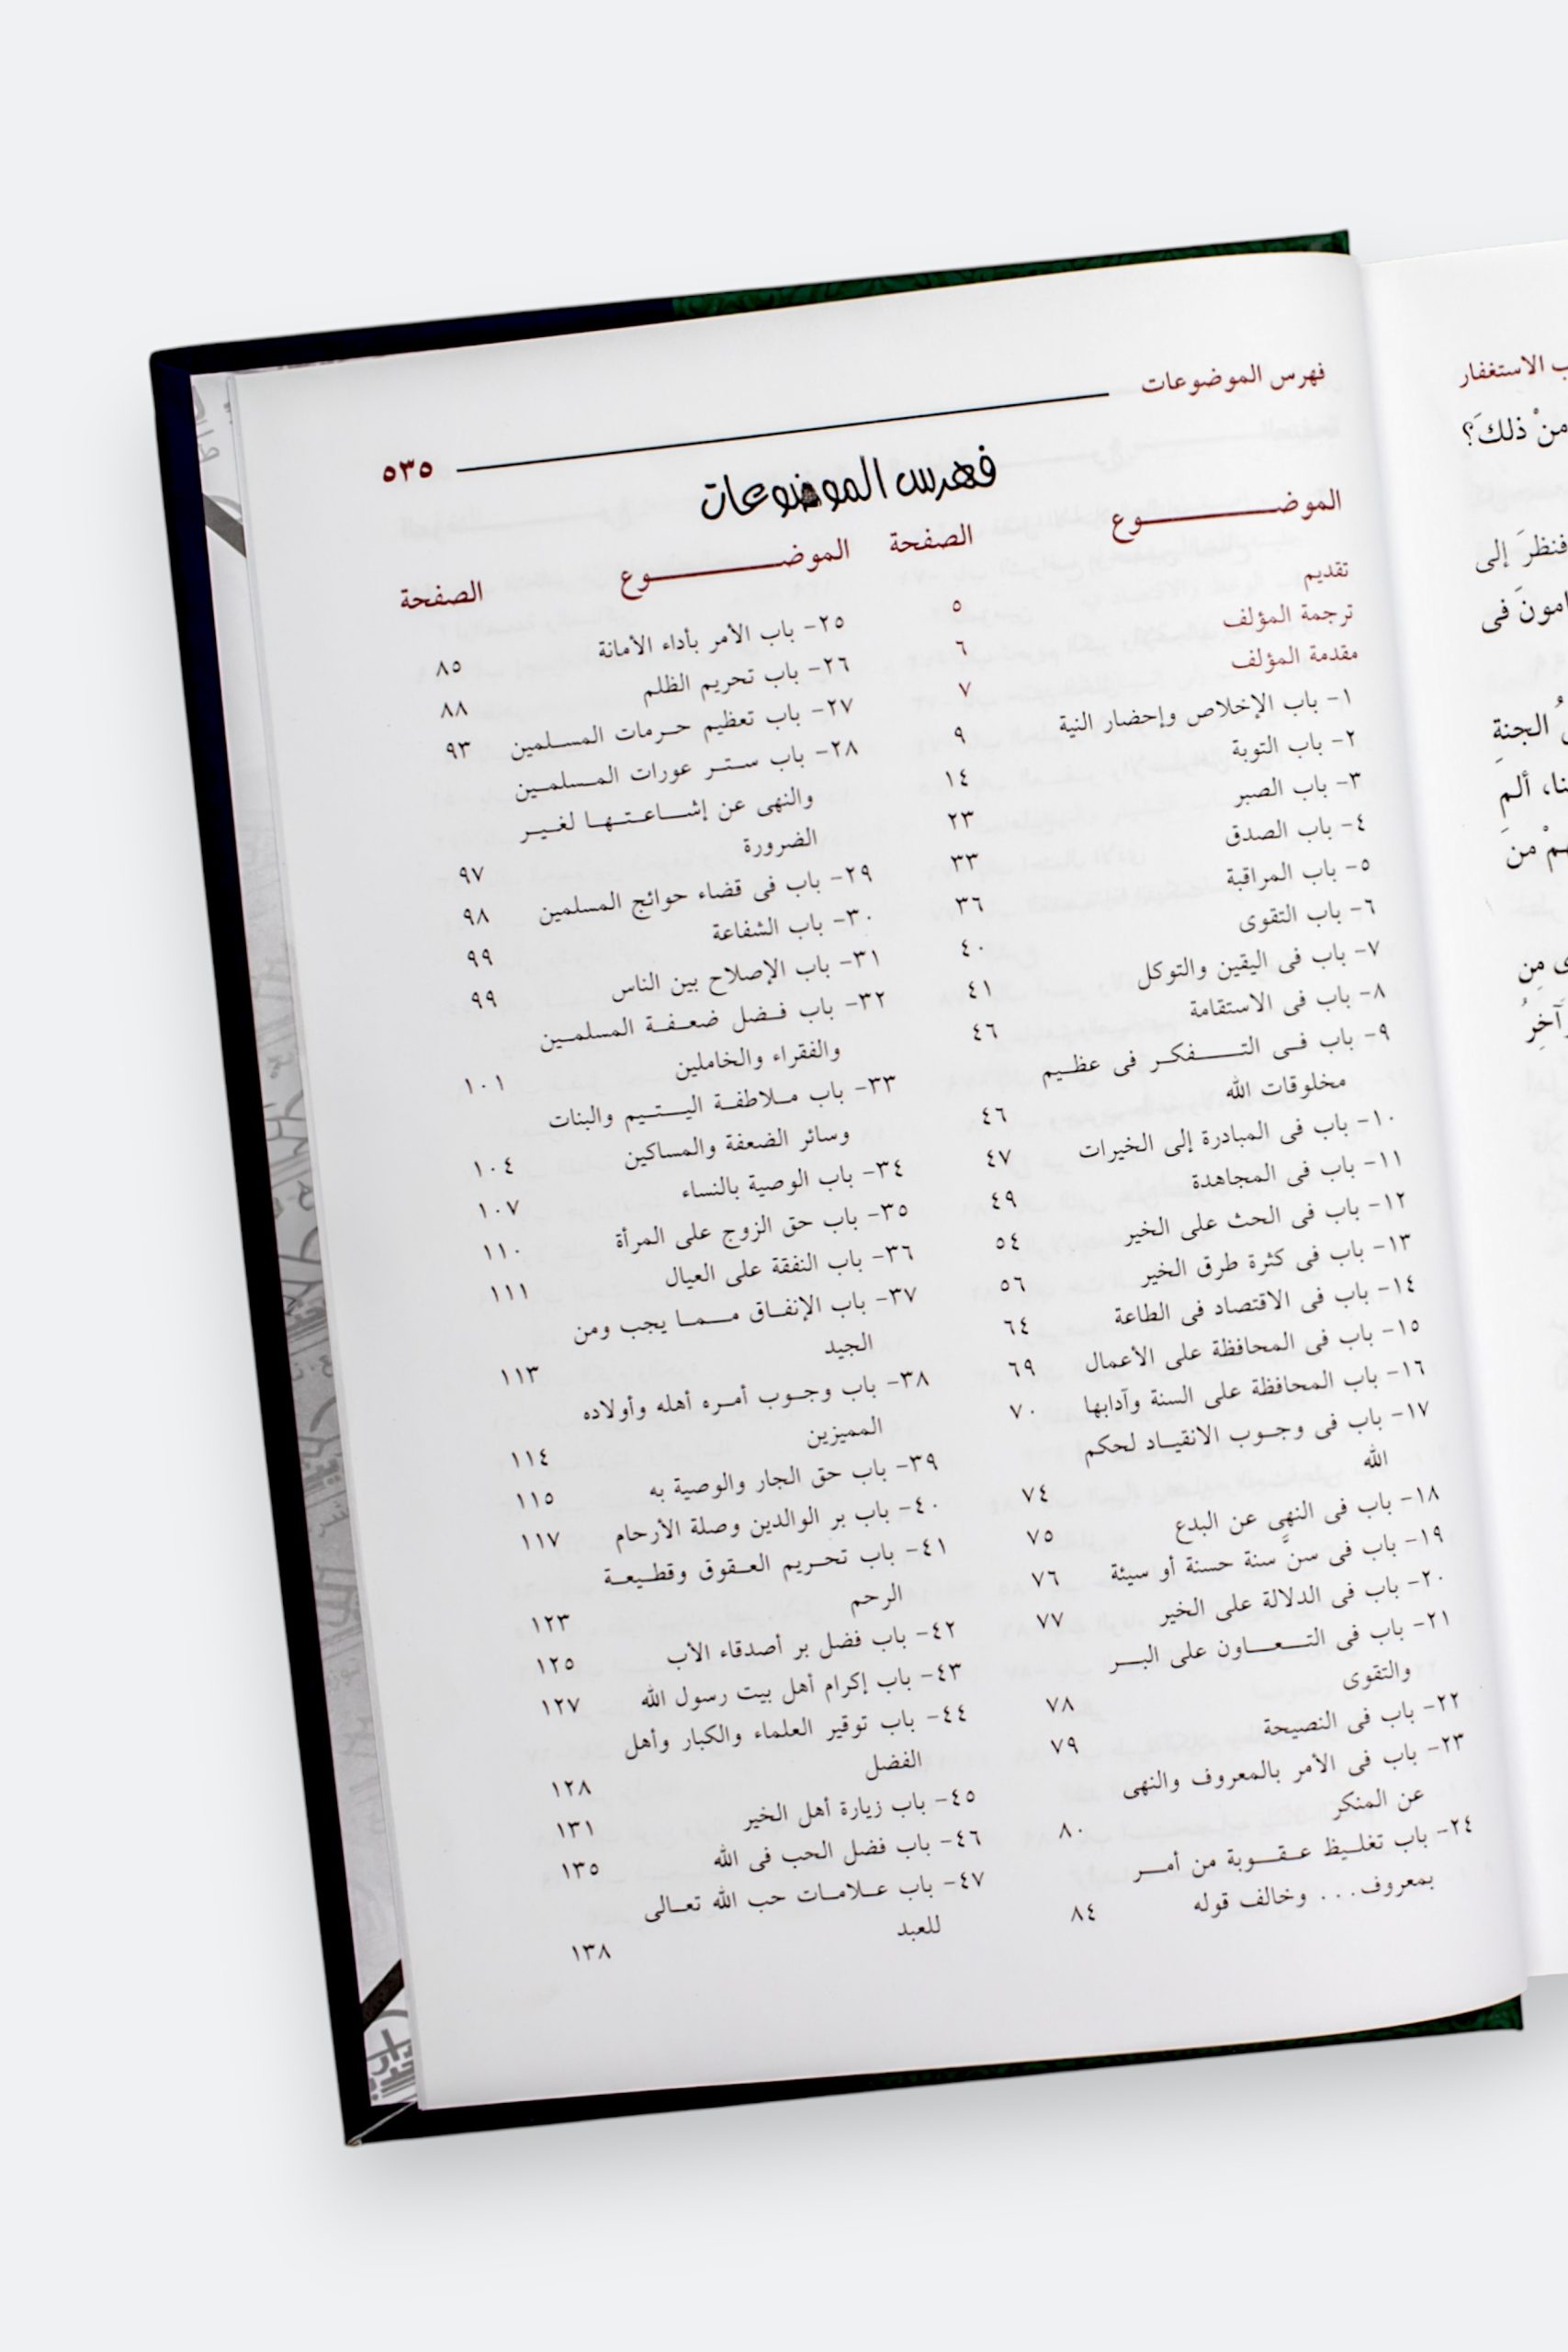 ب الاستغفار
منْ ذلكَ؟
فنظرَ إلى
امونَ فى
الجنةِ
نا، ألم
همْ منَ
ى مِن
آخِرُ
فهرس الموضوعات
٥٣٥
فهرس الموضوعات
الموضـــــــــــوع
الصفحة
تقديم ٥
ترجمة المؤلف ٦
مقدمة المؤلف ٧
١- باب الإخلاص وإحضار النية ٩
٢- باب التوبة ١٤
٣- باب الصبر ٢٣
٤- باب الصدق ٣٣
٥- باب المراقبة ٣٦
٦- باب التقوى ٤٠
٧- باب فى اليقين والتوكل ٤١
٨- باب فى الاستقامة ٤٦
٩- باب فــى التــــــفكــر فى عظــيم
مخلوقات الله ٤٦
١٠- باب فى المبادرة إلى الخيرات ٤٧
١١- باب فى المجاهدة ٤٩
١٢- باب فى الحث على الخير ٥٤
١٣- باب فى كثرة طرق الخير ٥٦
١٤- باب فى الاقتصاد فى الطاعة ٦٤
١٥- باب فى المحافظة على الأعمال ٦٩
١٦- باب المحافظة على السنة وآدابها ٧٠
١٧- باب فى وجــوب الانقيــاد لحكم
الله ٧٤
١٨- باب فى النهى عن البدع ٧٥
١٩- باب فى سنَّ سنة حسنة أو سيئة ٧٦
٢٠- باب فى الدلالة على الخير ٧٧
٢١- باب فى التــــعــــاون على البــــر
والتقوى ٧٨
٢٢- باب فى النصيحة ٧٩
٢٣- باب فى الأمر بالمعروف والنهى
عن المنكر ٨٠
٢٤- باب تغلــيظ عــقــــوبة من أمــــر
بمعروف... وخالف قوله ٨٤
الموضـــــــــــوع
الصفحة
٢٥- باب الأمر بأداء الأمانة ٨٥
٢٦- باب تحريم الظلم ٨٨
٢٧- باب تعظيم حــرمات المســلمين ٩٣
٢٨- باب ســتــر عورات المــسلمــين
والنهى عن إشــــاعــتــهــا لغــيــر
الضرورة ٩٧
٢٩- باب فى قضاء حوائج المسلمين ٩٨
٣٠- باب الشفاعة ٩٩
٣١- باب الإصلاح بين الناس ٩٩
٣٢- باب فــضل ضعــفــة المسلمــين
والفقراء والخاملين ١٠١
٣٣- باب مــلاطفــة اليــــتــيم والبنات
وسائر الضعفة والمساكين ١٠٤
٣٤- باب الوصية بالنساء ١٠٧
٣٥- باب حق الزوج على المرأة ١١٠
٣٦- باب النفقة على العيال ١١١
٣٧- باب الإنفــاق مــــمــا يجب ومن
الجيد ١١٣
٣٨- باب وجــوب أمــره أهله وأولاده
المميزين ١١٤
٣٩- باب حق الجار والوصية به ١١٥
٤٠- باب بر الوالدين وصلة الأرحام ١١٧
٤١- باب تحــريم العــقوق وقطــيعــة
الرحم ١٢٣
٤٢- باب فضل بر أصدقاء الأب ١٢٥
٤٣- باب إكرام أهل بيت رسول الله ١٢٧
٤٤- باب توقير العلماء والكبار وأهل
الفضل ١٢٨
٤٥- باب زيارة أهل الخير ١٣١
٤٦- باب فضل الحب فى الله ١٣٥
٤٧- باب عــلامــات حب الله تعــالى
للعبد ١٣٨